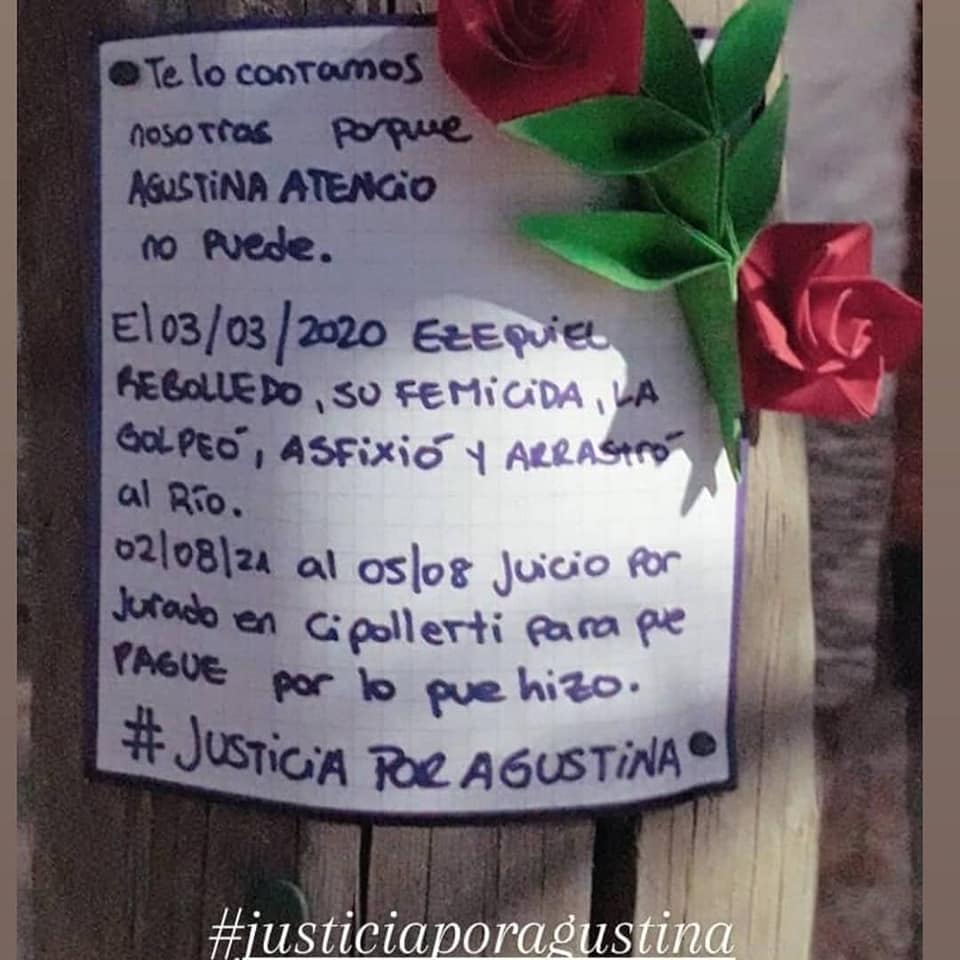 Te lo contamos
nosotras porque
AGUSTINA ATENCIO
no puede.
El 03/03/2020 EZEQUIEL
REBOLLEDO, SU FEMICIDA, LA
GOLPEÓ, ASFIXIÓ Y ARRASTRÓ
al Río.
02/08/21 al 05/08 Juicio por
Jurado en Cipollerti para que
PAGUE por lo que hizo.
#JUSTICIA POR AGUSTINA
#justiciaporagustina